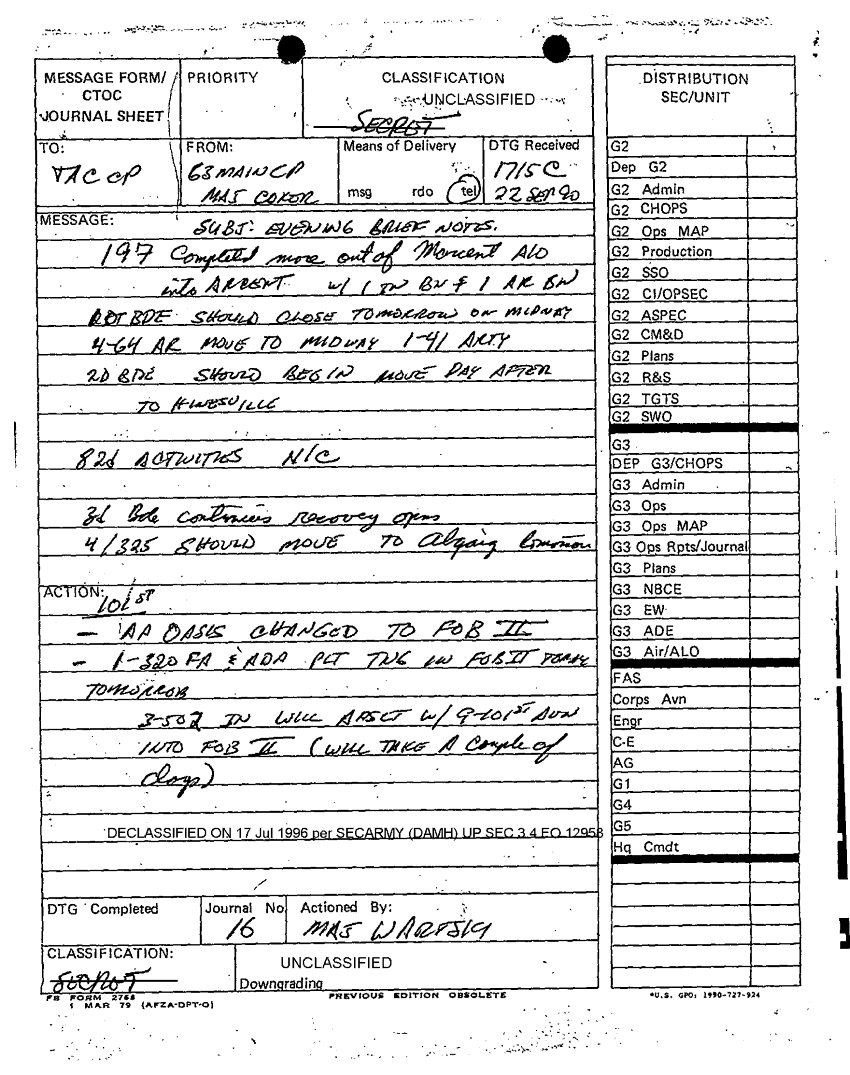 MESSAGE FORM/
CTOC
JOURNAL SHEET
PRIORITY
CLASSIFICATION
UNCLASSIFIED
SECRET
TO:
TAC CP
FROM:
G3 MAIN CP
MAJ COKER
Means of Delivery
msg rdo tel
DTG Received
1715 C
22 SEP 90
MESSAGE:
SUBJ: EVENING BRIEF NOTES.
197 Completed move out of Marcent AO
into ARCENT w/ 1 IN BN & 1 AR BN
BDE SHOULD CLOSE TOMORROW ON MIDWAY
4-64 AR MOVE TO MIDWAY 1-41 ARTY
2D BDE SHOULD BEGIN MOVE DAY AFTER
TO HINESVILLE
82d ACTIVITIES N/C
3d Bde continues recovery opns
4/325 SHOULD MOVE TO tomorrow
ACTION:
101ST
— AA OASIS CHANGED TO FOB II
— 1-320 FA & ADA PLT TNG IN FOB II TODAY
TOMORROW
3-502 IN WILL AASLT W/ 9-101ST AVN
INTO FOB II (WILL TAKE A couple of
days)
DECLASSIFIED ON 17 Jul 1996 per SECARMY (DAMH) UP SEC 3.4 EO 12958
DTG Completed
Journal No
16
Actioned By:
MAJ
CLASSIFICATION:
SECRET
UNCLASSIFIED
Downgrading
FB FORM 2768
1 MAR 79 (AFZA-DPT-O)
PREVIOUS EDITION OBSOLETE
DISTRIBUTION
SEC/UNIT
G2
Dep G2
G2 Admin
G2 CHOPS
G2 Ops MAP
G2 Production
G2 SSO
G2 CI/OPSEC
G2 ASPEC
G2 CM&D
G2 Plans
G2 R&S
G2 TGTS
G2 SWO
G3
DEP G3/CHOPS
G3 Admin
G3 Ops
G3 Ops MAP
G3 Ops Rpts/Journal
G3 Plans
G3 NBCE
G3 EW
G3 ADE
G3 Air/ALO
FAS
Corps Avn
Engr
C-E
AG
G1
G4
G5
Hq Cmdt
*U.S. GPO: 1990-727-924